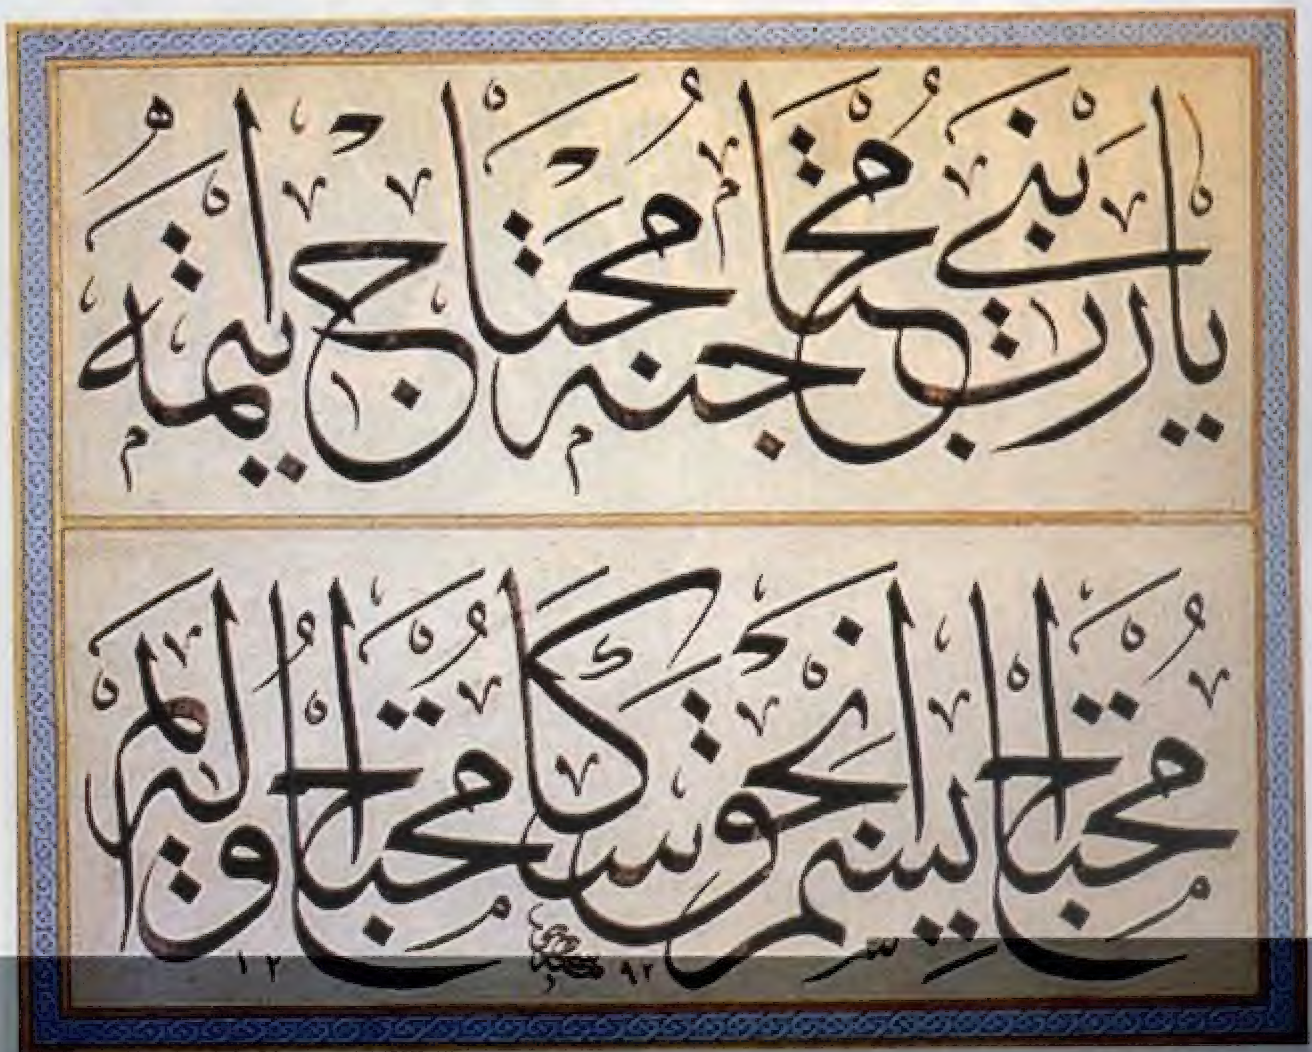 يا رب بني محتاجنه محتاج ايتمه
محتاج ايسم انجق سكا محتاج اوليم
١٢ ٩٢